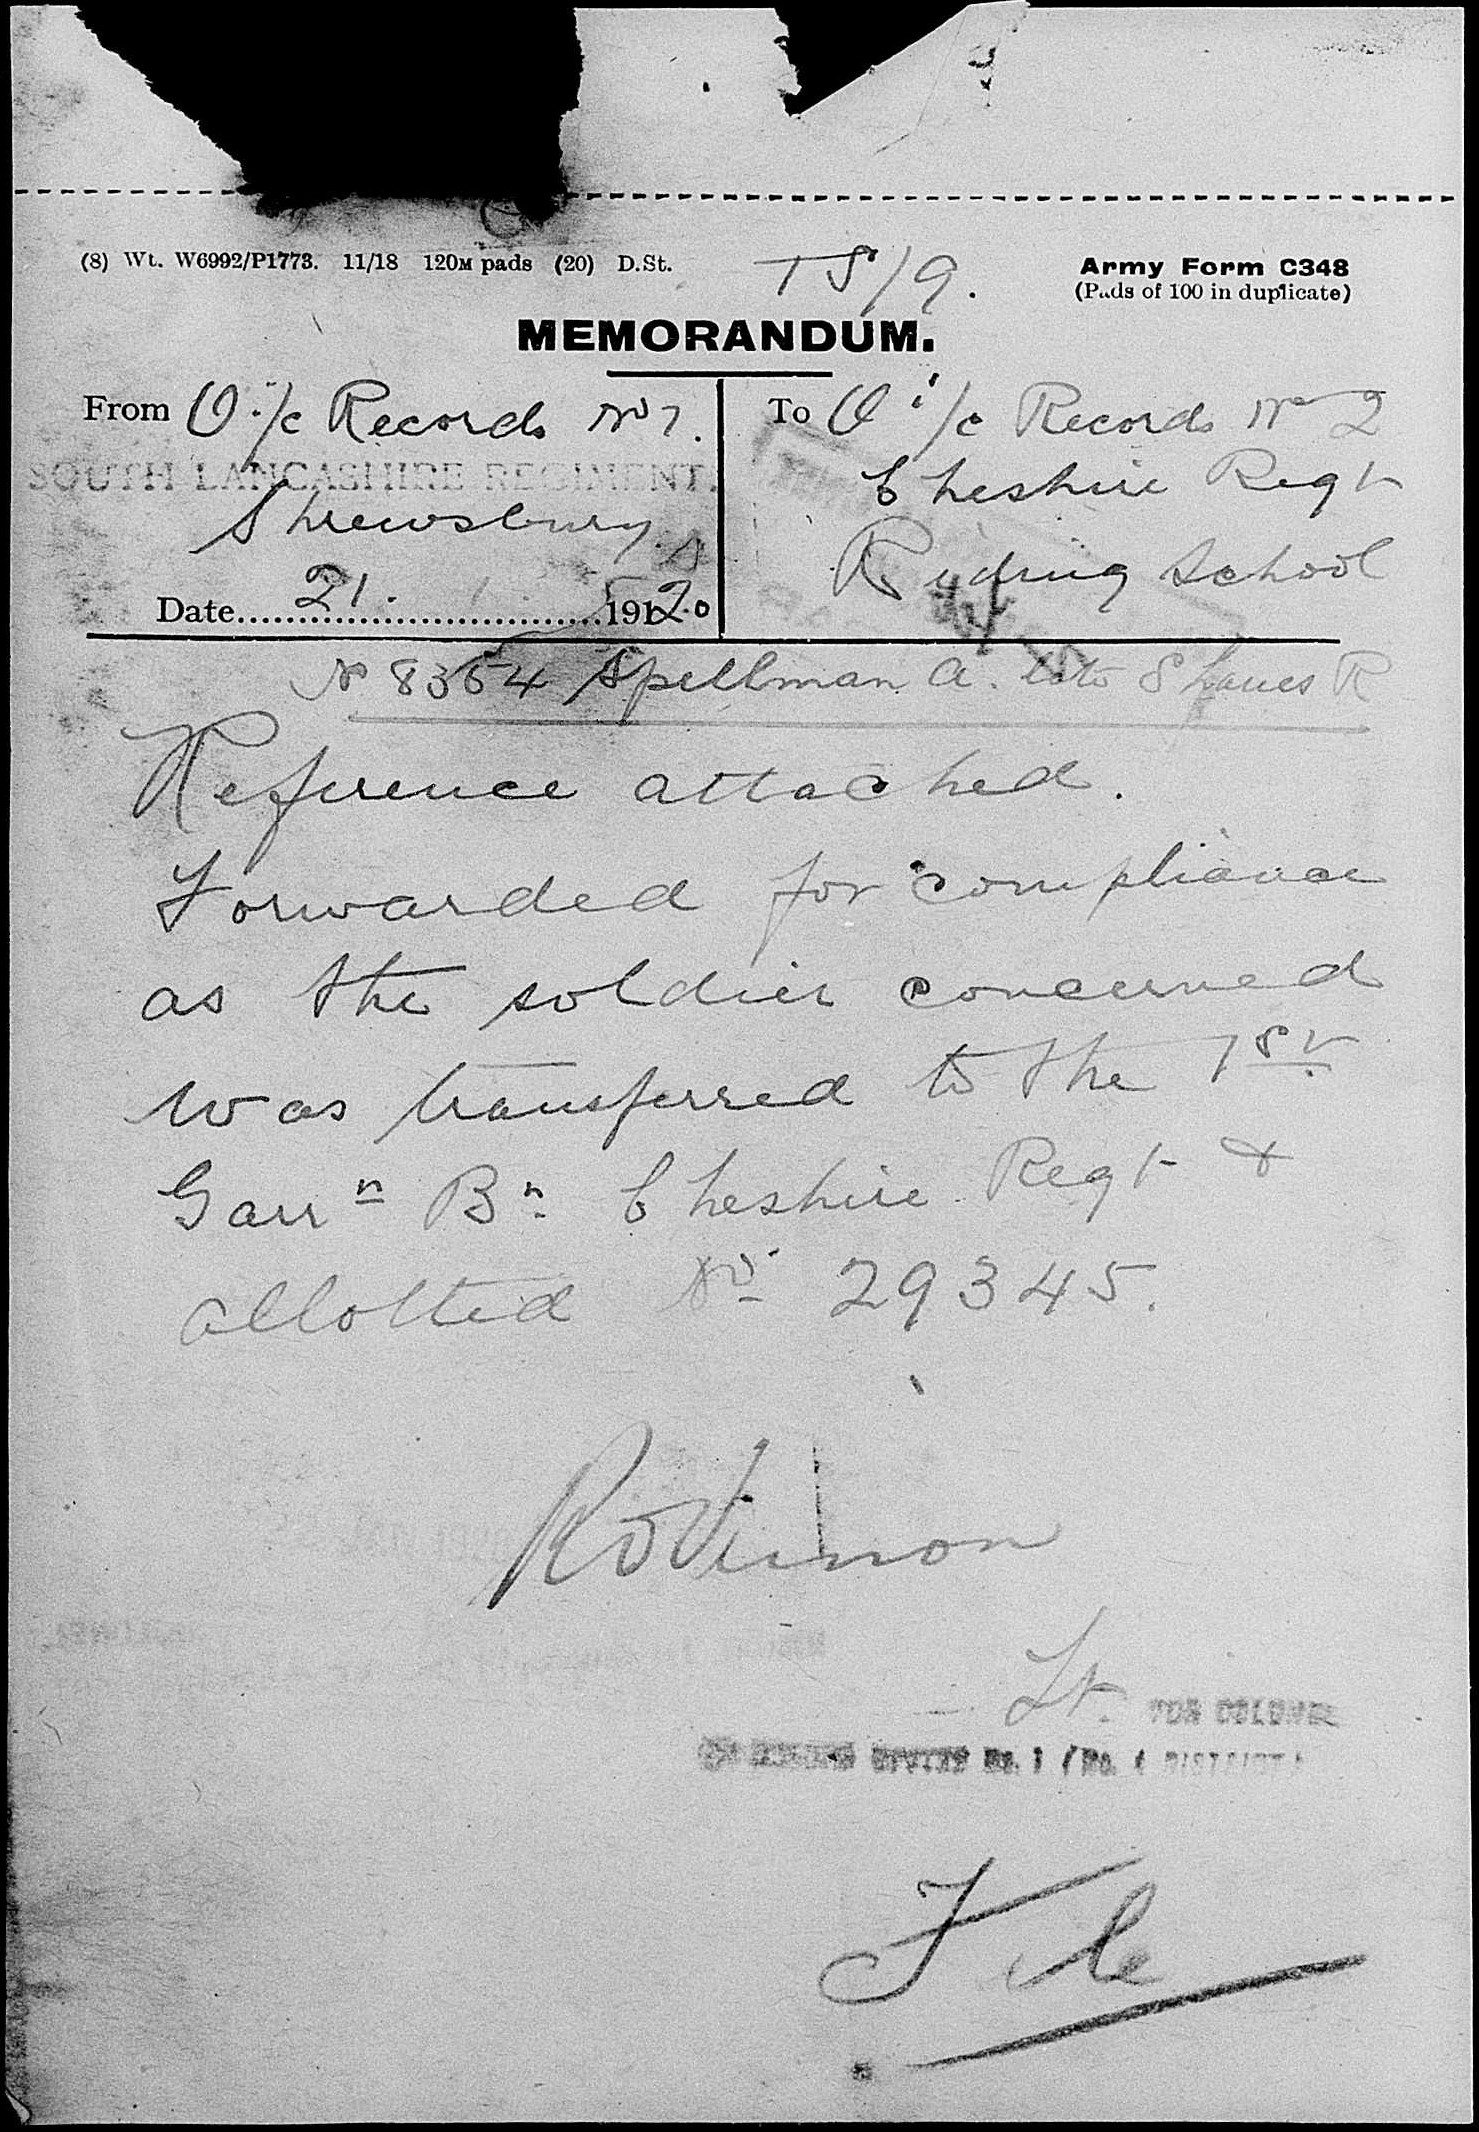 (8) Wt. W6992/P1773. 11/18 120M pads (20) D.St.
TS/9.
Army Form C348
(Pads of 100 in duplicate)
MEMORANDUM.
From O i/c Records No 1.
SOUTH LANCASHIRE REGIMENT.
Shrewsbury
Date 21. 1920
To O i/c Records No 2
Cheshire Regt
Riding School
No 8364 Spellman A. late S Lancs R
Reference attached.
Forwarded for compliance
as the soldier concerned
was transferred to the 1st
Garrn Bn Cheshire Regt &
allotted No 29345.
Robinson
Lt. FOR COLONEL
No. 1 / No. 4 DISTRICT
File